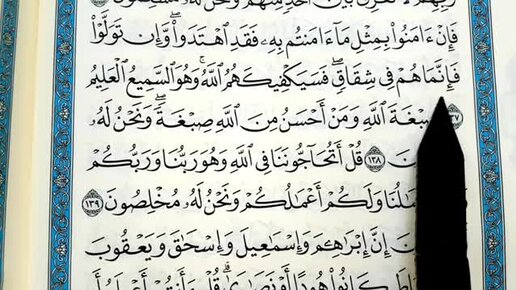 رَبِّهِمْ لَا نُفَرِّقُ بَيْنَ أَحَدٍ مِّنْهُمْ وَنَحْنُ لَهُۥ مُسْلِمُونَ
فَإِنْ ءَامَنُوا۟ بِمِثْلِ مَآ ءَامَنتُم بِهِۦ فَقَدِ ٱهْتَدَوا۟ۖ وَّإِن تَوَلَّوْا۟
فَإِنَّمَا هُمْ فِى شِقَاقٍۖ فَسَيَكْفِيكَهُمُ ٱللَّهُۚ وَهُوَ ٱلسَّمِيعُ ٱلْعَلِيمُ
صِبْغَةَ ٱللَّهِ وَمَنْ أَحْسَنُ مِنَ ٱللَّهِ صِبْغَةًۖ وَنَحْنُ لَهُۥ
١٣٨ قُلْ أَتُحَآجُّونَنَا فِى ٱللَّهِ وَهُوَ رَبُّنَا وَرَبُّكُمْ
وَلَكُمْ أَعْمَٰلُكُمْ وَنَحْنُ لَهُۥ مُخْلِصُونَ ١٣٩
إِنَّ إِبْرَٰهِۦمَ وَإِسْمَٰعِيلَ وَإِسْحَٰقَ وَيَعْقُوبَ
كَانُوا۟ هُودًا أَوْ نَصَٰرَىٰۗ قُلْ ءَأَنتُمْ أَعْلَمُ